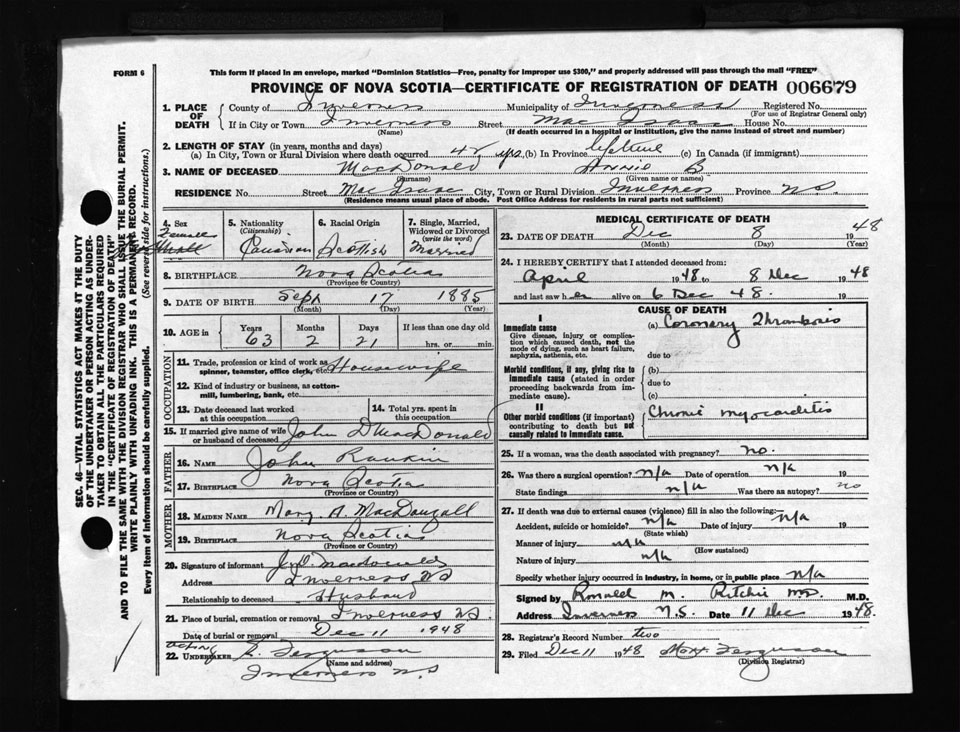 FORM 6
This form if placed in an envelope, marked "Dominion Statistics—Free, penalty for improper use $300," and properly addressed will pass through the mail "FREE"
PROVINCE OF NOVA SCOTIA—CERTIFICATE OF REGISTRATION OF DEATH 006679
1. PLACE OF DEATH
County of Inverness Municipality of Inverness Registered No.
(For use of Registrar General only)
If in City or Town Inverness Street Mac Isaac House No.
(Name) (If death occurred in a hospital or institution, give the name instead of street and number)
2. LENGTH OF STAY (in years, months and days)
(a) In City, Town or Rural Division where death occurred 48 yrs. (b) In Province Lifetime (c) In Canada (if immigrant)
3. NAME OF DECEASED MacDonald Annie B
(Surname) (Given name or names)
RESIDENCE No. Street Mac Isaac City, Town or Rural Division Inverness Province N.S.
(Residence means usual place of abode. Post Office Address for residents in rural parts not sufficient)
4. Sex Female
5. Nationality (Citizenship) Canadian
6. Racial Origin Scottish
7. Single, Married, Widowed or Divorced (write the word) Married
8. BIRTHPLACE Nova Scotia
(Province or Country)
9. DATE OF BIRTH Sept 17 1885
(Month) (Day) (Year)
10. AGE in Years Months Days If less than one day old
63 2 21 hrs. or min.
OCCUPATION
11. Trade, profession or kind of work as spinner, teamster, office clerk, etc. Housewife
12. Kind of industry or business, as cotton-mill, lumbering, bank, etc.
13. Date deceased last worked at this occupation
14. Total yrs. spent in this occupation
15. If married give name of wife or husband of deceased John D MacDonald
FATHER
16. NAME John Rankin
17. BIRTHPLACE Nova Scotia
(Province or Country)
MOTHER
18. MAIDEN NAME Mary A. MacDougall
19. BIRTHPLACE Nova Scotia
(Province or Country)
20. Signature of informant J.D. Macdonald
Address Inverness NS
Relationship to deceased Husband
21. Place of burial, cremation or removal Inverness NS.
Date of burial or removal Dec 11 1948
acting
22. UNDERTAKER Ferguson
(Name and address)
Inverness N.S
MEDICAL CERTIFICATE OF DEATH
23. DATE OF DEATH Dec 8 1948
(Month) (Day) (Year)
24. I HEREBY CERTIFY that I attended deceased from:
April 1948 to 8 Dec 1948
and last saw her alive on 6 Dec 48. 19
CAUSE OF DEATH
I
Immediate cause (a) Coronary Thrombosis
Give disease, injury or complication which caused death, not the mode of dying, such as heart failure, asphyxia, asthenia, etc.
due to
Morbid conditions, if any, giving rise to immediate cause (stated in order proceeding backwards from immediate cause).
(b)
due to
(c)
II
Other morbid conditions (if important) contributing to death but not causally related to immediate cause. Chronic myocarditis
25. If a woman, was the death associated with pregnancy? no.
26. Was there a surgical operation? n/a Date of operation n/a 19
State findings n/a Was there an autopsy? no
27. If death was due to external causes (violence) fill in also the following:—
Accident, suicide or homicide? n/a Date of injury n/a 19
(State which)
Manner of injury n/a
(How sustained)
Nature of injury n/a
Specify whether injury occurred in industry, in home, or in public place n/a
Signed by Ronald M. Ritchie MD. M.D.
Address Inverness N.S. Date 11 Dec 1948.
28. Registrar's Record Number two
29. Filed Dec 11 1948 Ferguson
(Division Registrar)
SEC. 46—VITAL STATISTICS ACT MAKES IT THE DUTY
OF THE UNDERTAKER OR PERSON ACTING AS UNDER-
TAKER TO OBTAIN ALL THE PARTICULARS REQUIRED
IN THE "CERTIFICATE OF REGISTRATION OF DEATH"
AND TO FILE THE SAME WITH THE DIVISION REGISTRAR WHO SHALL ISSUE THE BURIAL PERMIT.
WRITE PLAINLY WITH UNFADING INK. THIS IS A PERMANENT RECORD.
Every item of information should be carefully supplied. (See reverse side for instructions.)